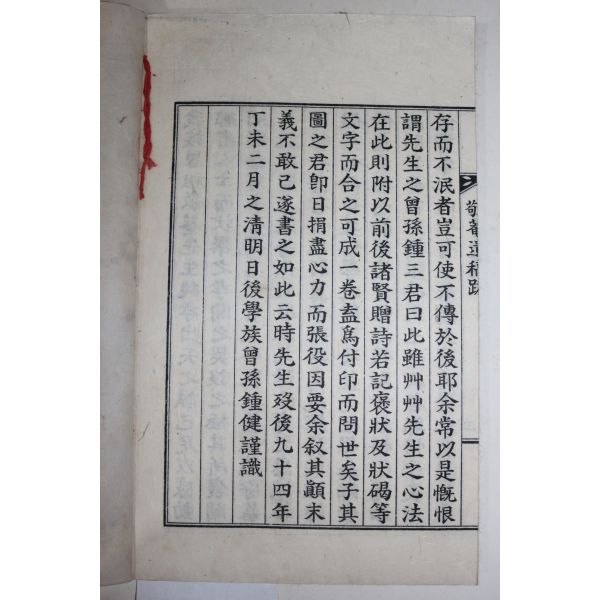 敬菴遺稿跋
存而不泯者豈可使不傳於後耶余常以是慨恨
謂先生之曾孫鍾三君曰此雖艸艸先生之心法
在此則附以前後諸賢贈詩若記褒狀及狀碣等
文字而合之可成一卷盍爲付印而問世矣子其
圖之君卽日捐盡心力而張役因要余叙其顚末
義不敢已遂書之如此云時先生歿後九十四年
丁未二月之清明日後學族曾孫鍾健謹識